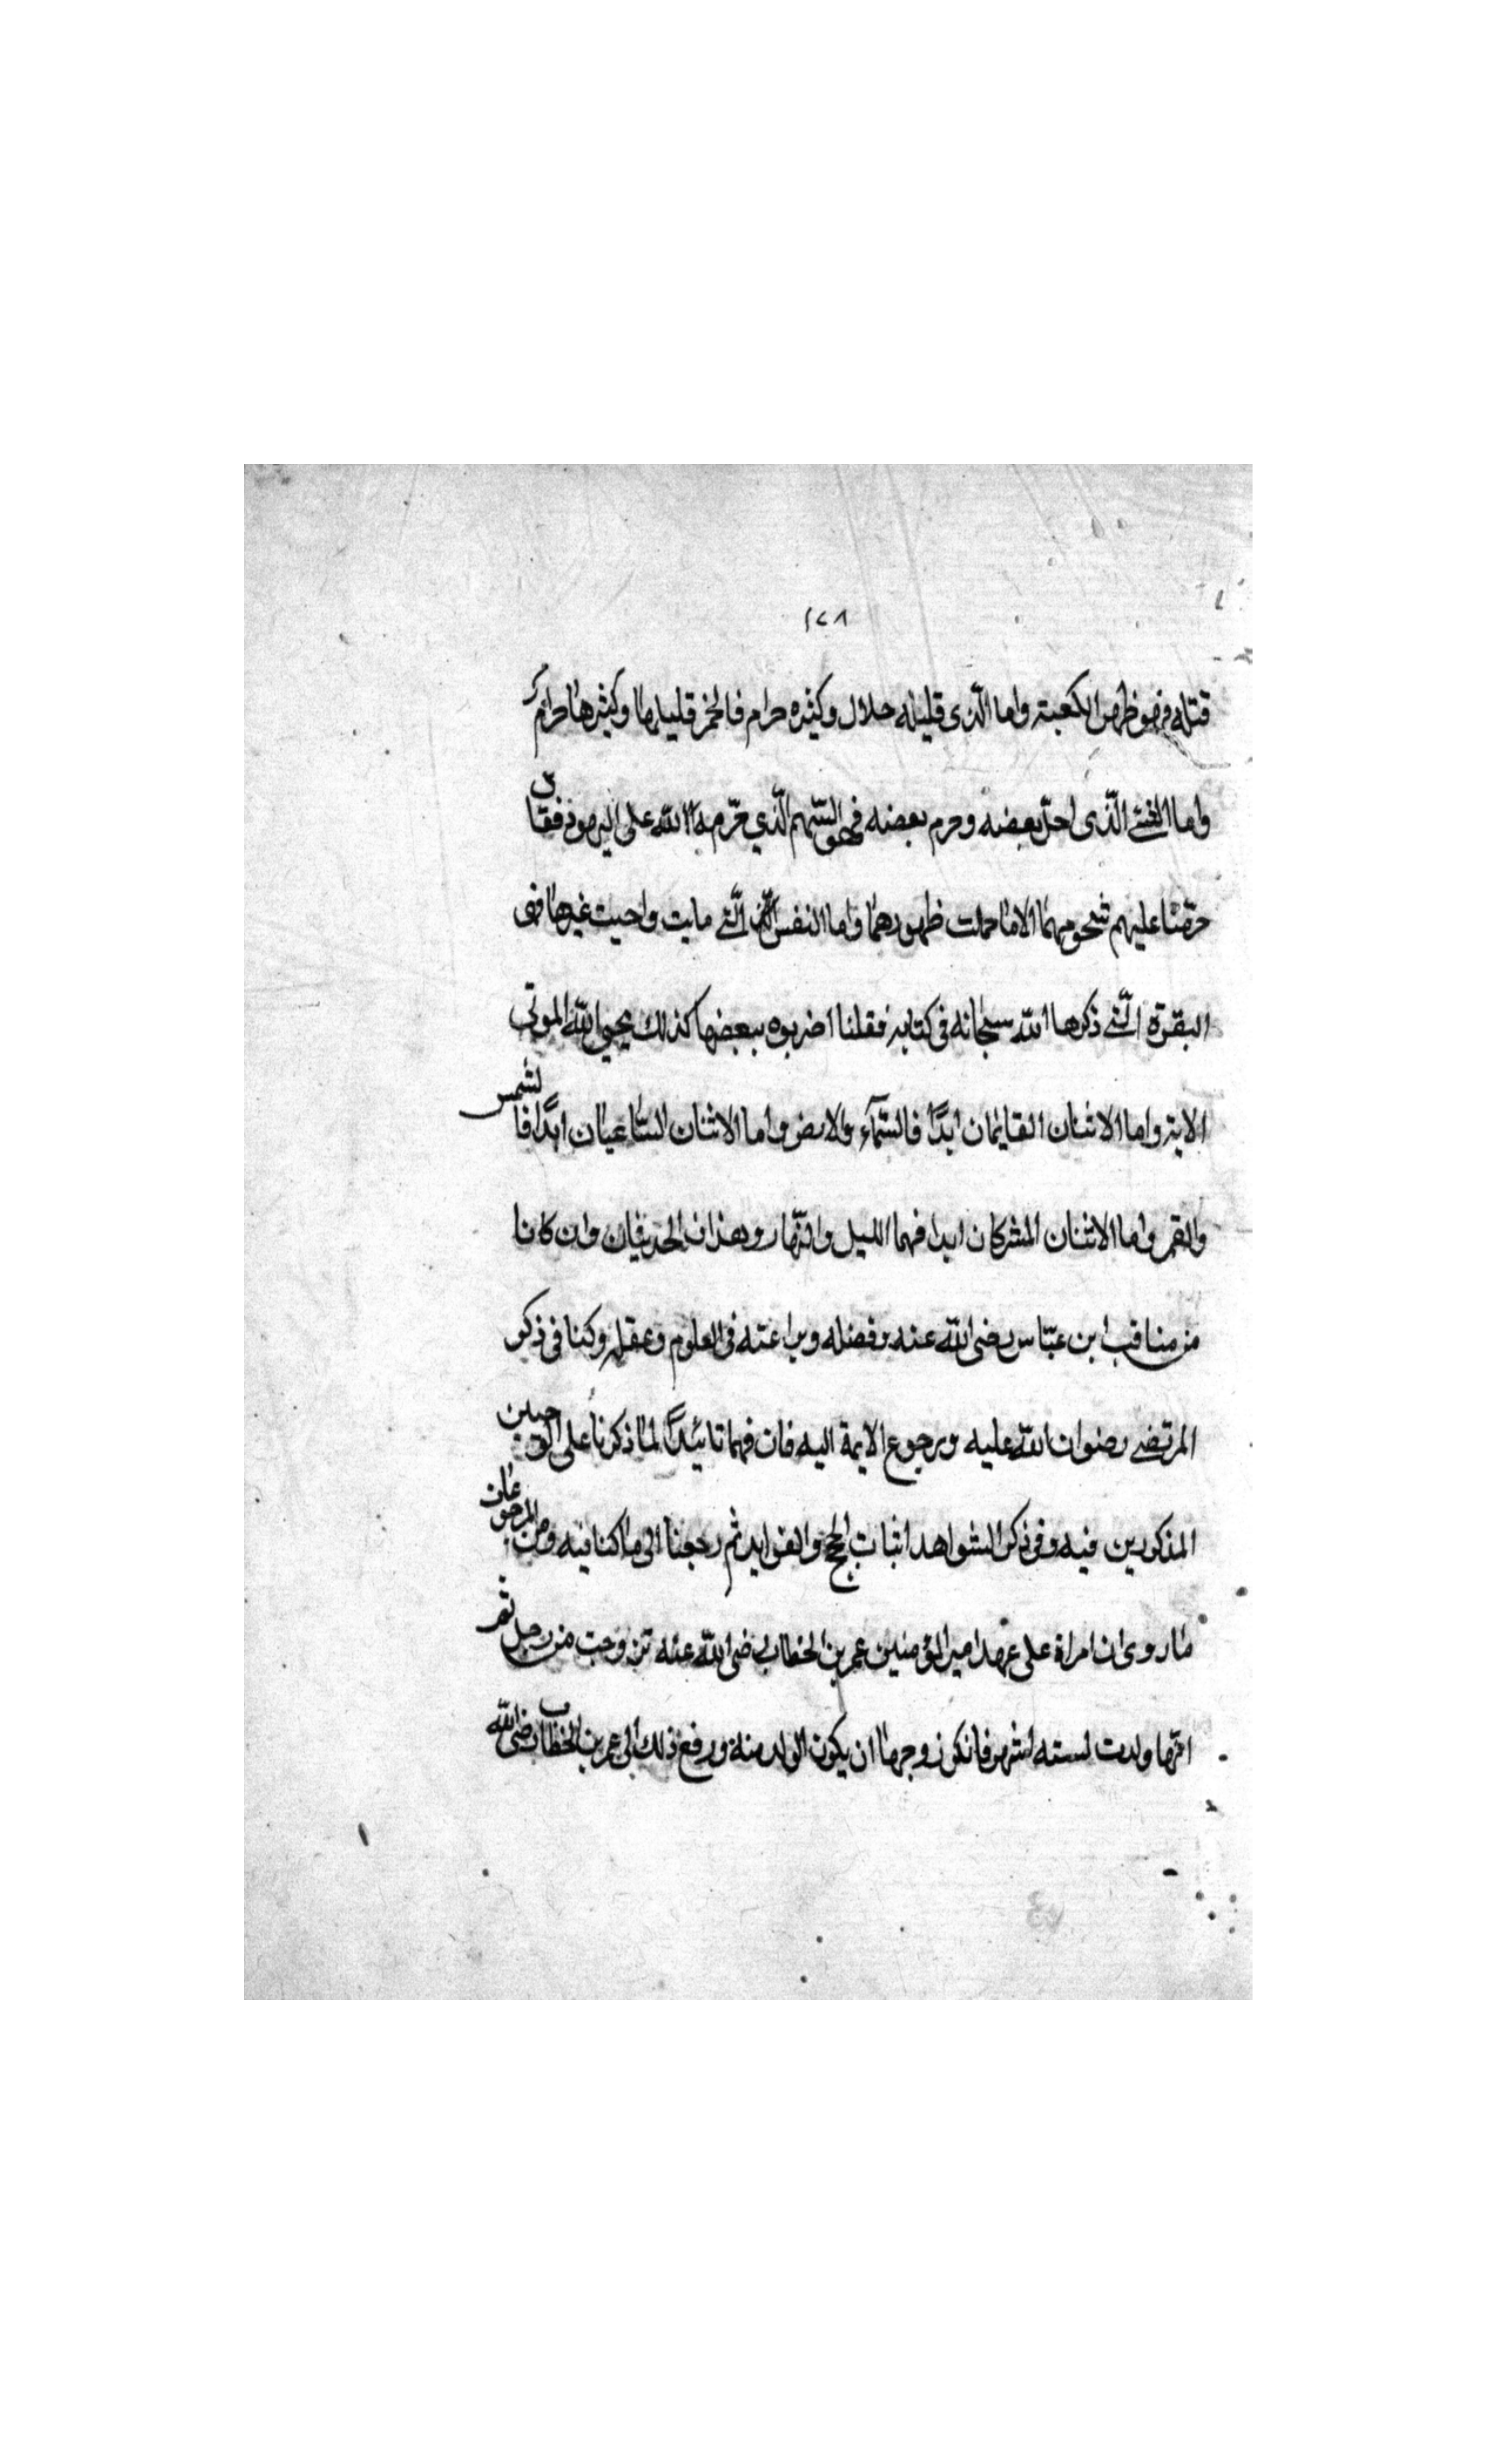 ١٢٨
قتله فهو ظهر الكعبة واما الذى قليله حلال وكثيره حرام فالخمر قليلها وكثيرها حرام
واما الشئ الّذى احلّ بعضه وحرم بعضه فهو الشحم الّذي حرّمه الله على اليهود فقال
حرّمنا عليهم شحومهما الا ما حملت ظهورهما واما النفس الّتي ماتت واحيت غيرها فهى
البقرة الّتي ذكرها الله سبحانه فى كتابه فقلنا اضربوه ببعضها كذلك يحيي الله الموتى
الاية واما الاثنان القايمان ابدًا فالسّمآء والارض واما الاثنان السّاعيان ابدًا فالشمس
والقمر واما الاثنان المشركان ابدا فهما الليل والنّهار وهذان الحديثان وان كانا
من مناقب ابن عبّاس رضى الله عنه وفضله وبراعته فى العلوم وعقله وكنا فى ذكر
المرتضى رضوان الله عليه ورجوع الايمة اليه فان فهما تائيدًا لما ذكرنا على
المذكورين فيه وفى ذكر الشواهد اثبات الحجج والفوايد ثم رجعنا الى ما كنا فيه ومن
ما روى ان امراة على عهد امير المؤمنين عمر بن الخطاب رضى الله عنه تزوجت من رجل ثم
انّها ولدت لسته اشهر فانكر زوجها ان يكون الولد منه ورفع ذلك الى عمر بن الخطاب رضى الله